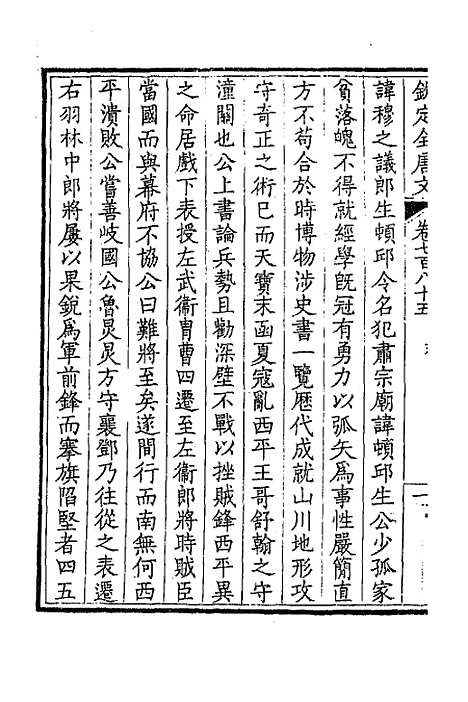 欽定全唐文
卷七百八十五
諱穆之議郎生頓邱令名犯肅宗廟諱頓邱生公少孤家
貧落魄不得就經學旣冠有勇力以弧矢爲事性嚴簡直
方不苟合於時博物涉史書一覽歷代成就山川地形攻
守奇正之術巳而天寶末函夏寇亂西平王哥舒翰之守
潼關也公上書論兵勢且勸深壁不戰以挫賊鋒西平異
之命居戲下表授左武衞胄曹四遷至左衞郎將時賊臣
當國而與幕府不協公曰難將至矣遂間行而南無何西
平潰敗公嘗善岐國公魯炅炅方守襄鄧乃往從之表遷
右羽林中郎將屢以果銳爲軍前鋒而搴旗陷堅者四五